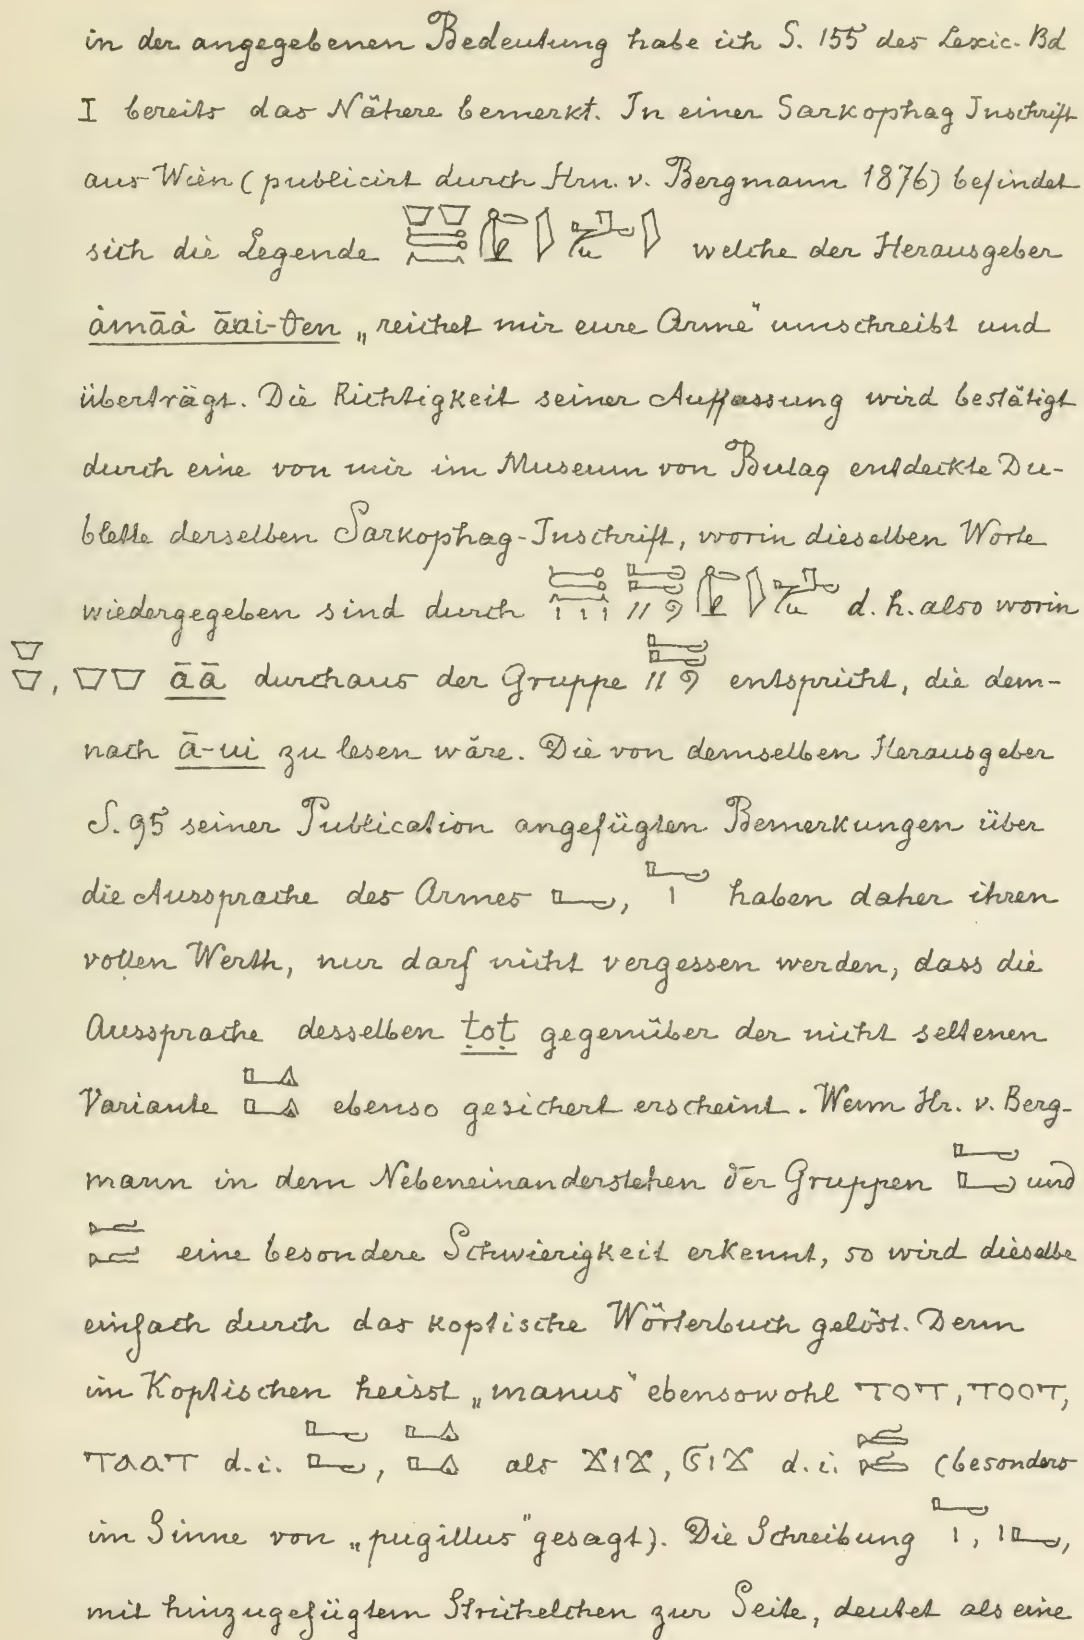 in der angegebenen Bedeutung habe ich S. 155 des Lexic. Bd
I bereits das Nähere bemerkt. In einer Sarkophag Inschrift
aus Wien (publicirt durch Hrn. v. Bergmann 1876) befindet
sich die Legende welche der Herausgeber
àmāà āai-ten „reichet mir eure Arme" umschreibt und
überträgt. Die Richtigkeit seiner Auffassung wird bestätigt
durch eine von mir im Museum von Bulaq entdeckte Du-
blette derselben Sarkophag-Inschrift, worin dieselben Worte
wiedergegeben sind durch d. h. also worin
āā durchaus der Gruppe entspricht, die dem-
nach ā-ui zu lesen wäre. Die von demselben Herausgeber
S. 95 seiner Publication angefügten Bemerkungen über
die Aussprache des Armes 𓂝, 𓂝𓏤 haben daher ihren
vollen Werth, nur darf nicht vergessen werden, dass die
Aussprache desselben ṭoṭ gegenüber der nicht seltenen
Variante ebenso gesichert erscheint. Wenn Hr. v. Berg-
mann in dem Nebeneinanderstehen der Gruppen 𓂝𓂝 und
𓂧𓂧 eine besondere Schwierigkeit erkennt, so wird dieselbe
einfach durch das koptische Wörterbuch gelöst. Denn
im Koptischen heisst „manus" ebensowohl ⲦⲞⲦ, ⲦⲞⲞⲦ,
ⲦⲀⲀⲦ d. i. 𓂝𓂝, als ϪⲒϪ, ϬⲒϪ d. i. 𓂧𓂧 (besonders
im Sinne von „pugillus" gesagt). Die Schreibung 𓂝𓏤, 𓏤𓂝,
mit hinzugefügtem Strichelchen zur Seite, deutet als eine